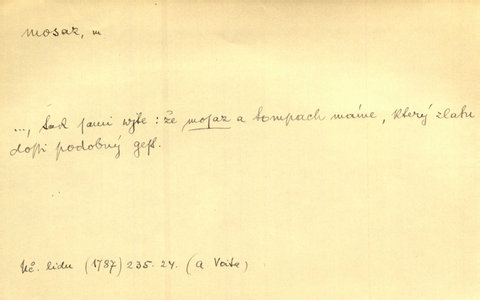 mosaz, m
..., šak sami wjte: že mosaz a tompach máme, který zlatu
dosti podobný gest.
Uč. lidu (1787) 235. 24. (A Voita)